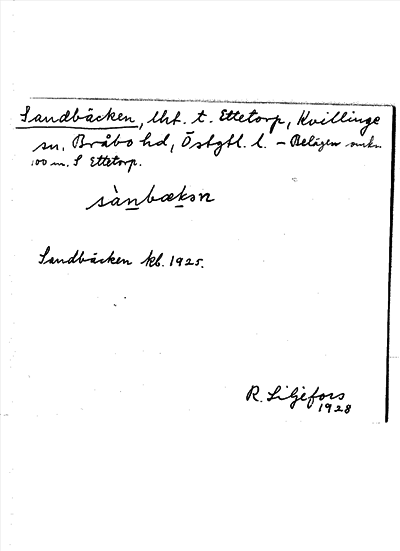 Sandbäcken, lht. t. Ettetorp, Kvillinge
sn, Bråbo hd, Östgtl. l. – Belägen
100 m. S Ettetorp.
sànbækən
Sandbäcken kb. 1925.
R. Liljefors
1928